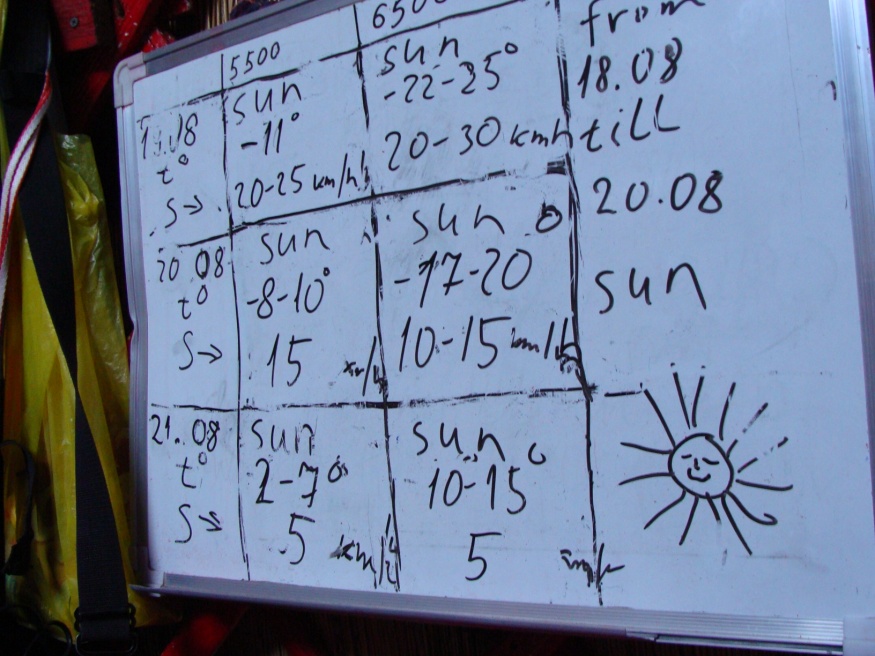 5500
6500
from
sun
sun
18.08
19.08
-11°
-22-25°
till
t°
20-25 km/h
20-30 kmh
S→
20.08
20 08
sun
sun
sun
t°
-8-10°
-17-20°
S→
15 km/h
10-15 km/h
21.08
sun
sun
t°
2-7°
10-15°
S→
5 km/h
5